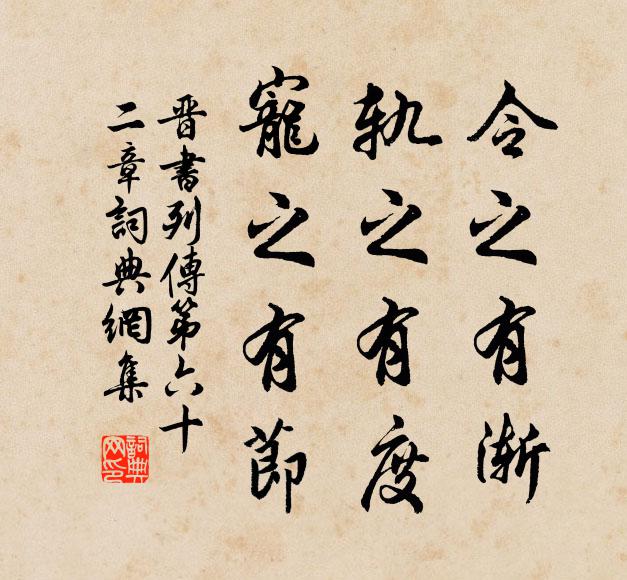 令之有漸
軌之有度
寵之有節
晋書列傳第六十
二章詞典網集
詞典
网印